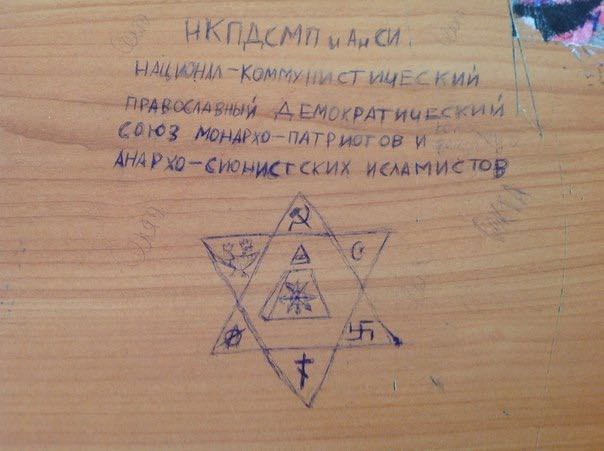 НКПДСМП и АнСИ.
НАЦИОНАЛ-КОММУНИСТИЧЕСКИЙ
ПРАВОСЛАВНЫЙ ДЕМОКРАТИЧЕСКИЙ
СОЮЗ МОНАРХО-ПАТРИОТОВ И
АНАРХО-СИОНИСТСКИХ ИСЛАМИСТОВ